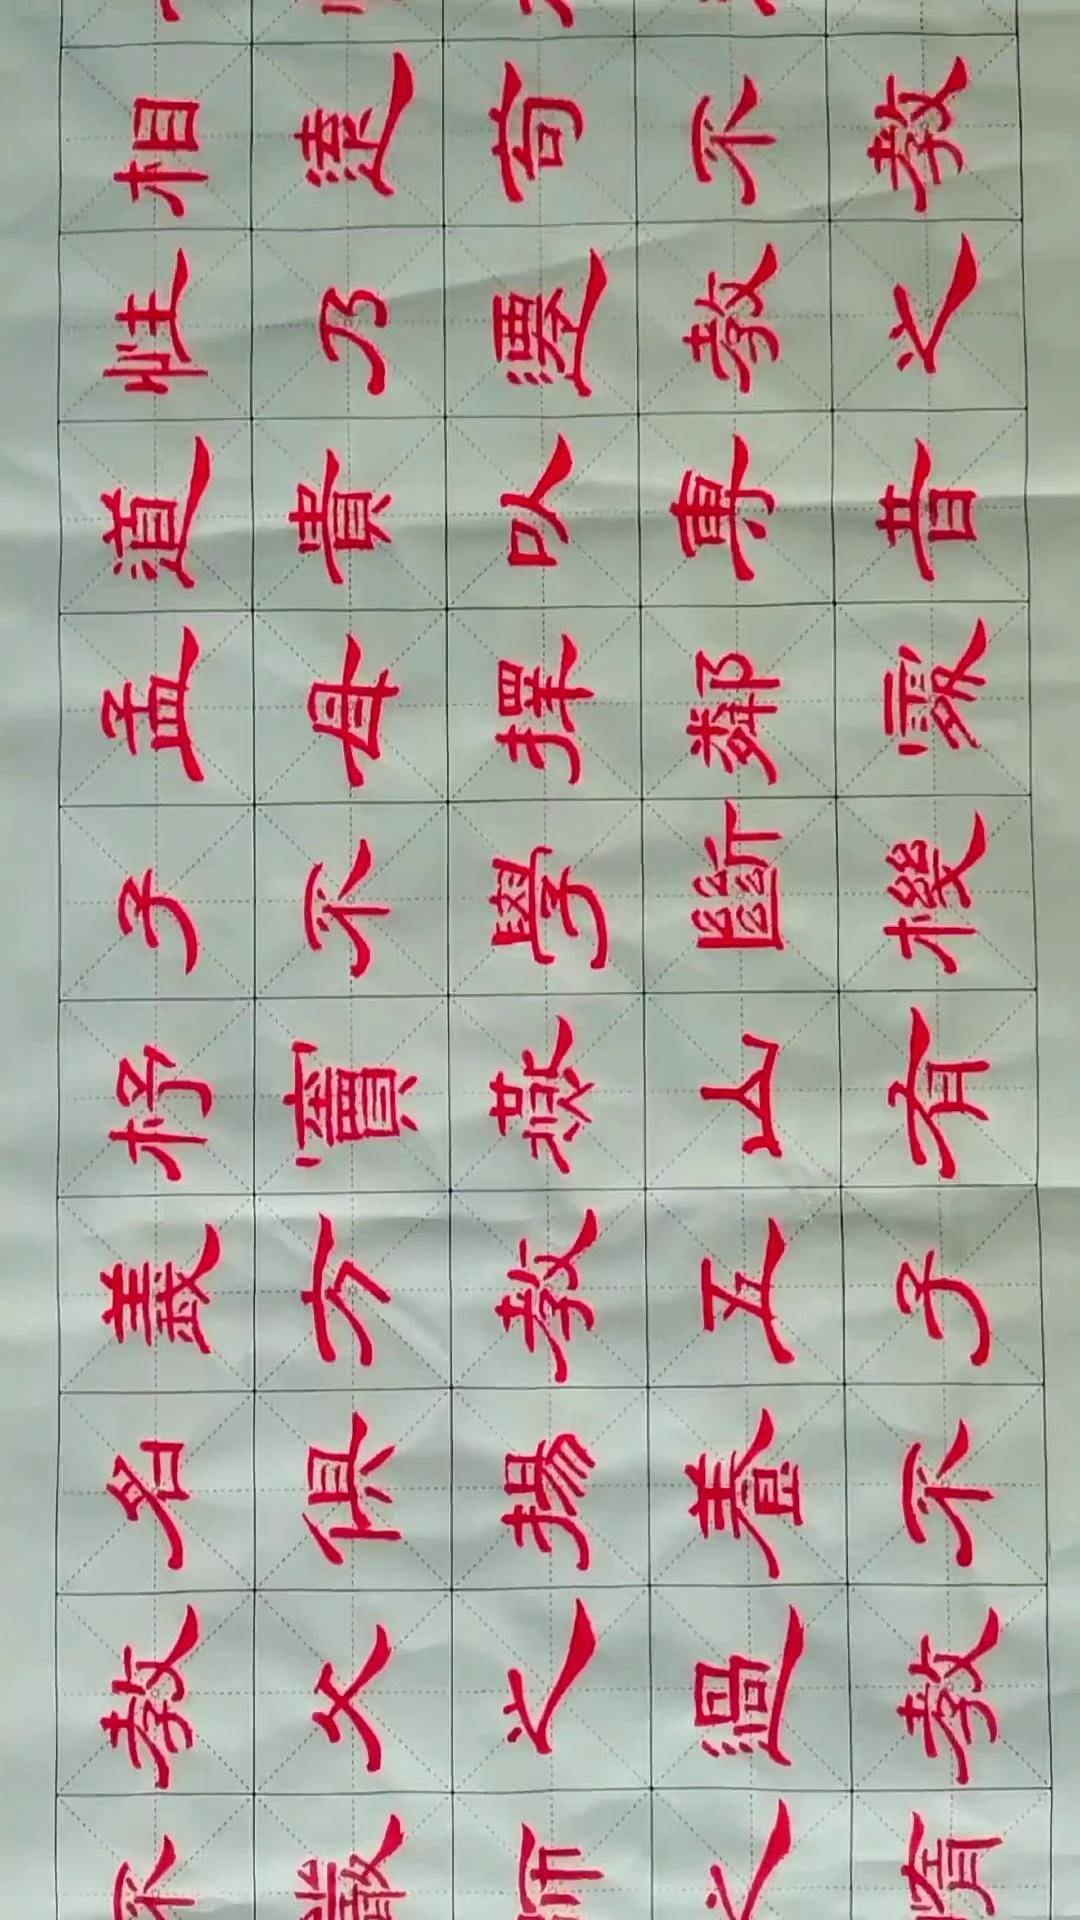 相遠苟不教
性乃遷教之
道貴以專昔
孟母擇鄰處
子不學斷機
杼竇燕山有
義方教五子
名俱揚養不
教父之過教
不嚴師之惰